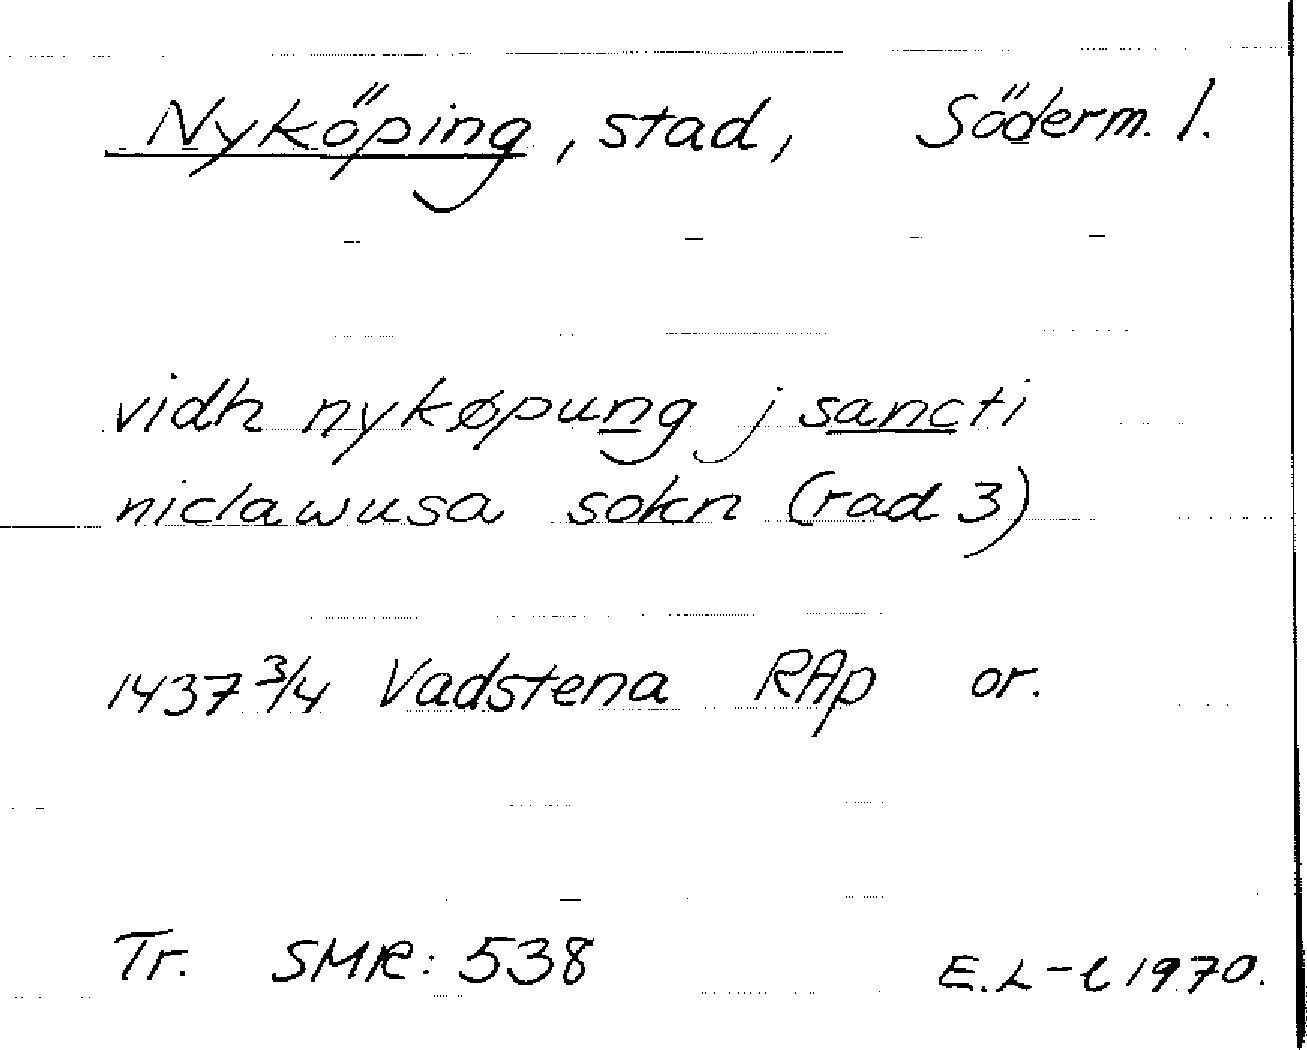 Nyköping, stad, Söderm. l.
vidh nykøpung j sancti
niclawusa sokn (rad 3)
1437 3/4 Vadstena RAp or.
Tr. SMR: 538 E.L-l 1970.